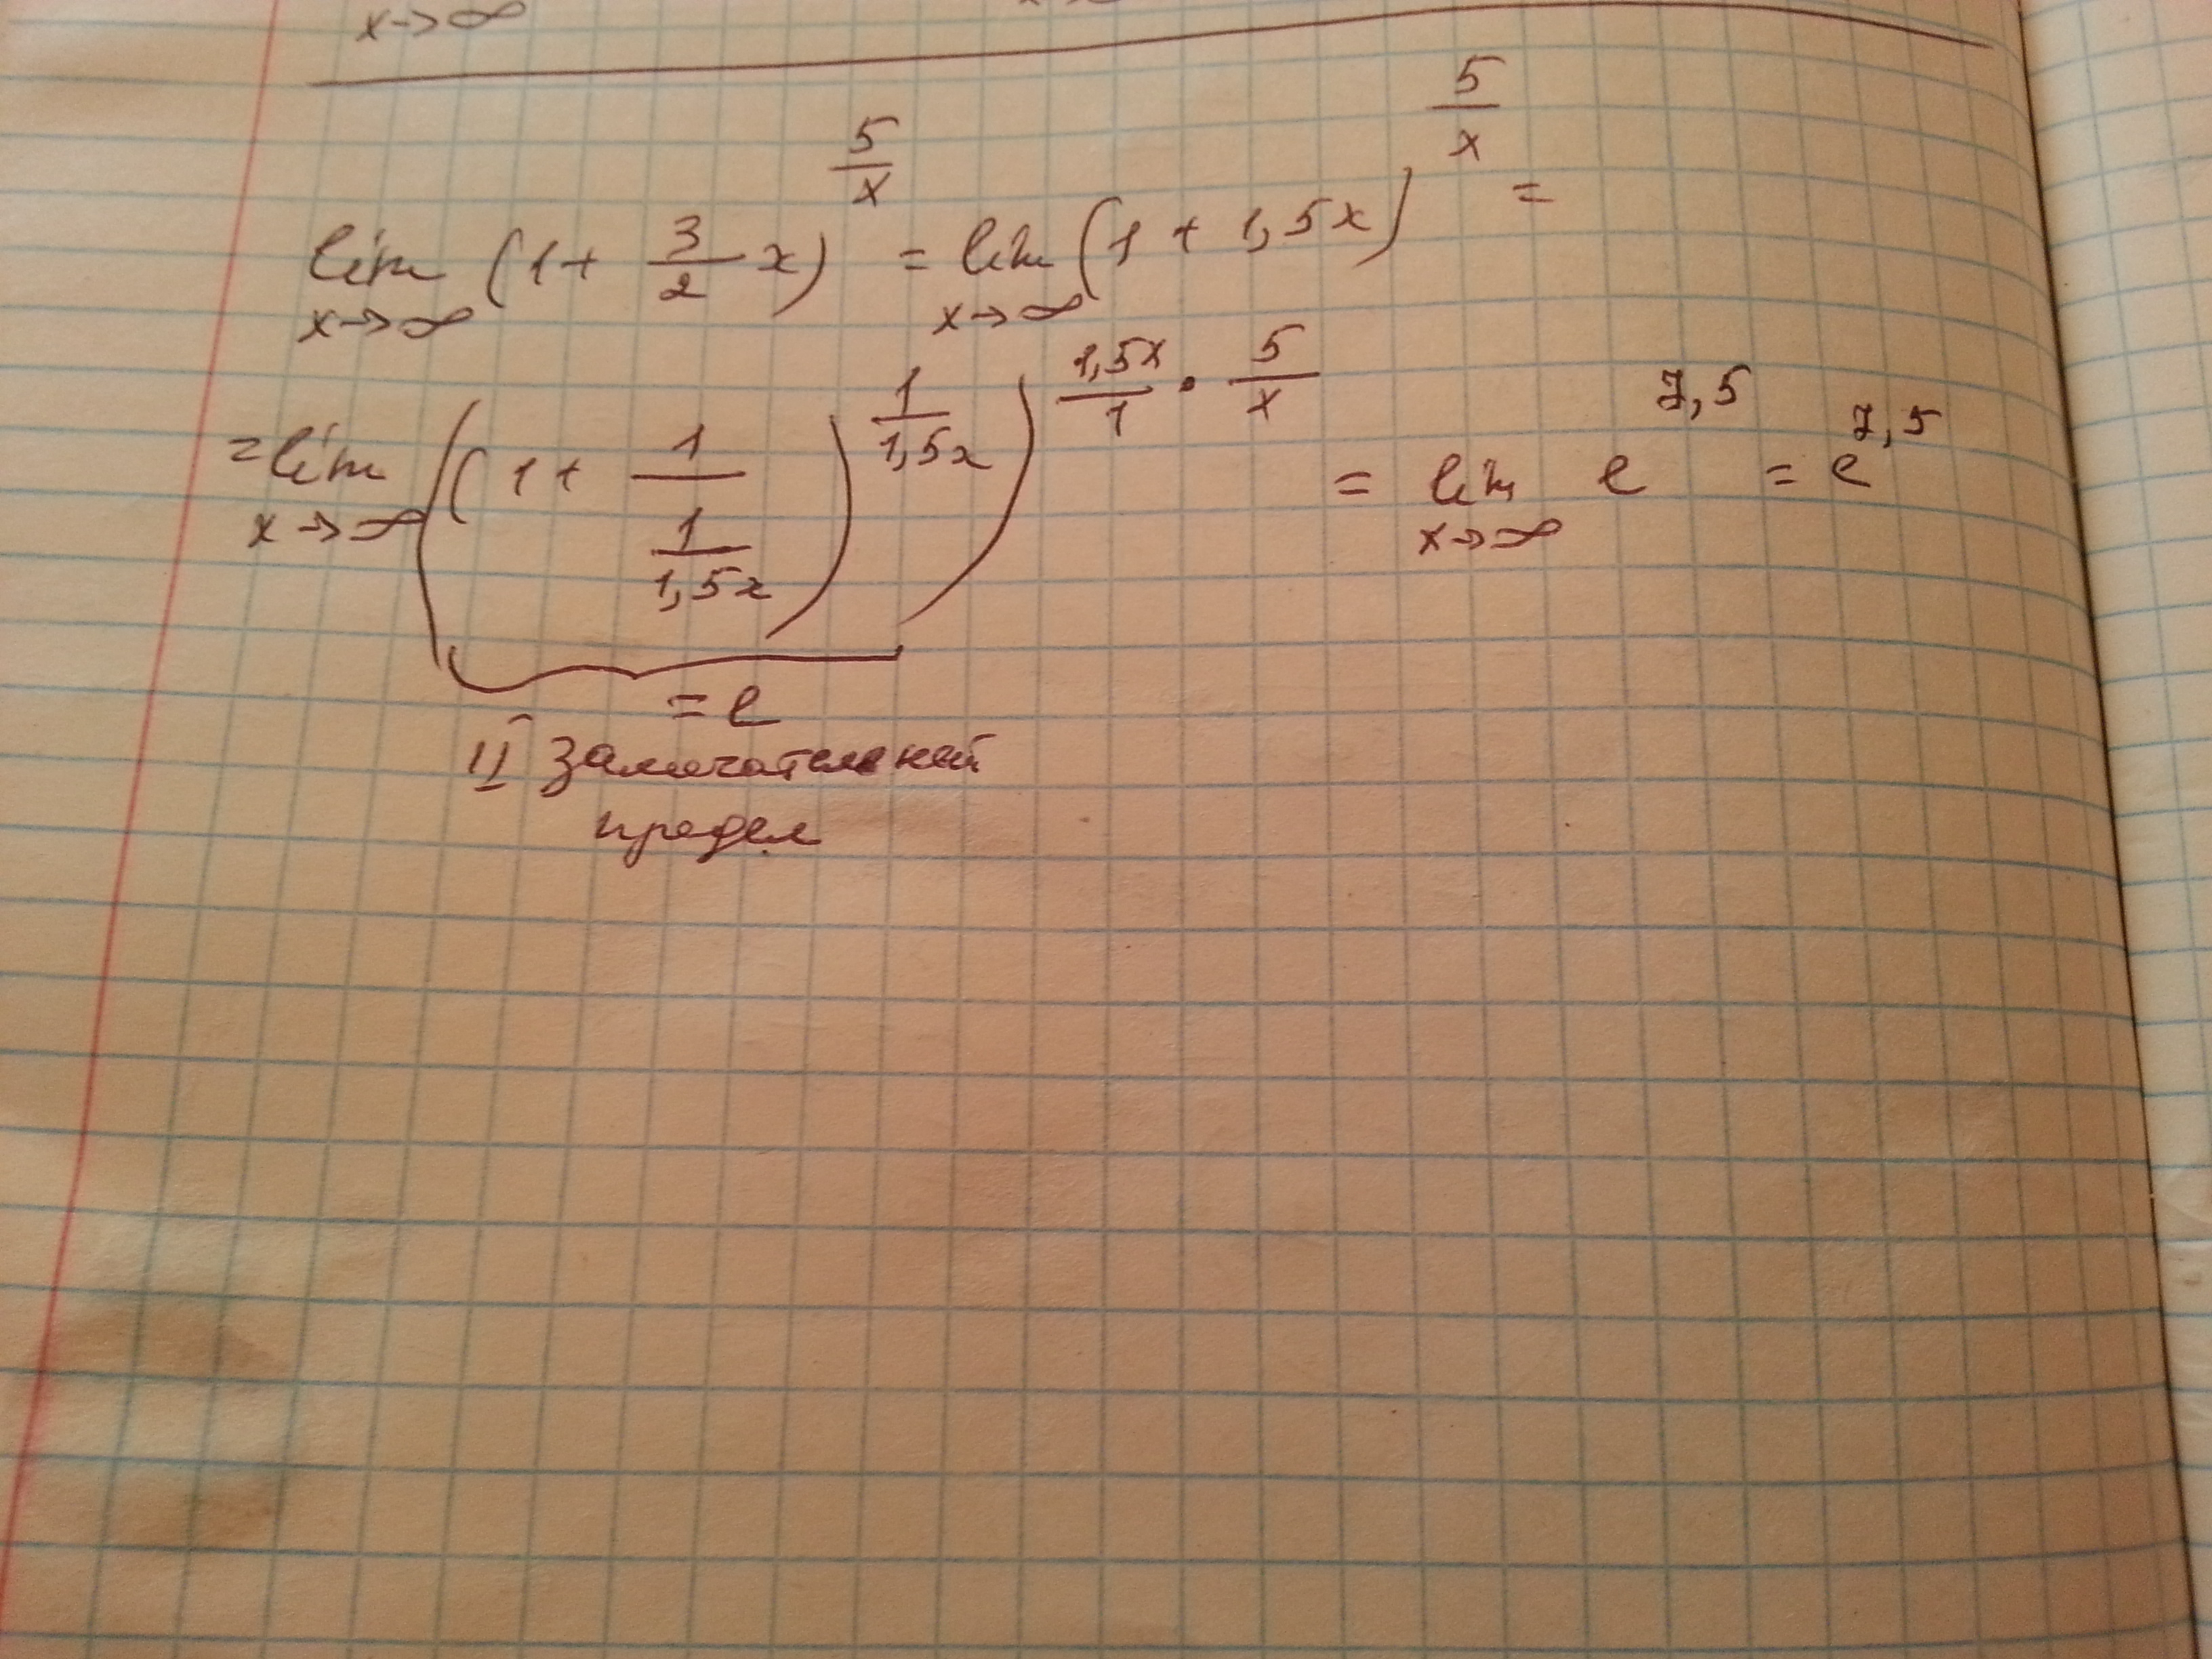 x→∞
lim (1 + 3/2 x)^(5/x) = lim (1 + 1,5x)^(5/x) =
x→∞ x→∞
= lim ((1 + 1/(1/(1,5x)))^(1/(1,5x)))^((1,5x)/1 · 5/x) = lim e^(7,5) = e^(7,5)
x→∞ x→∞
= e
II замечательный
предел